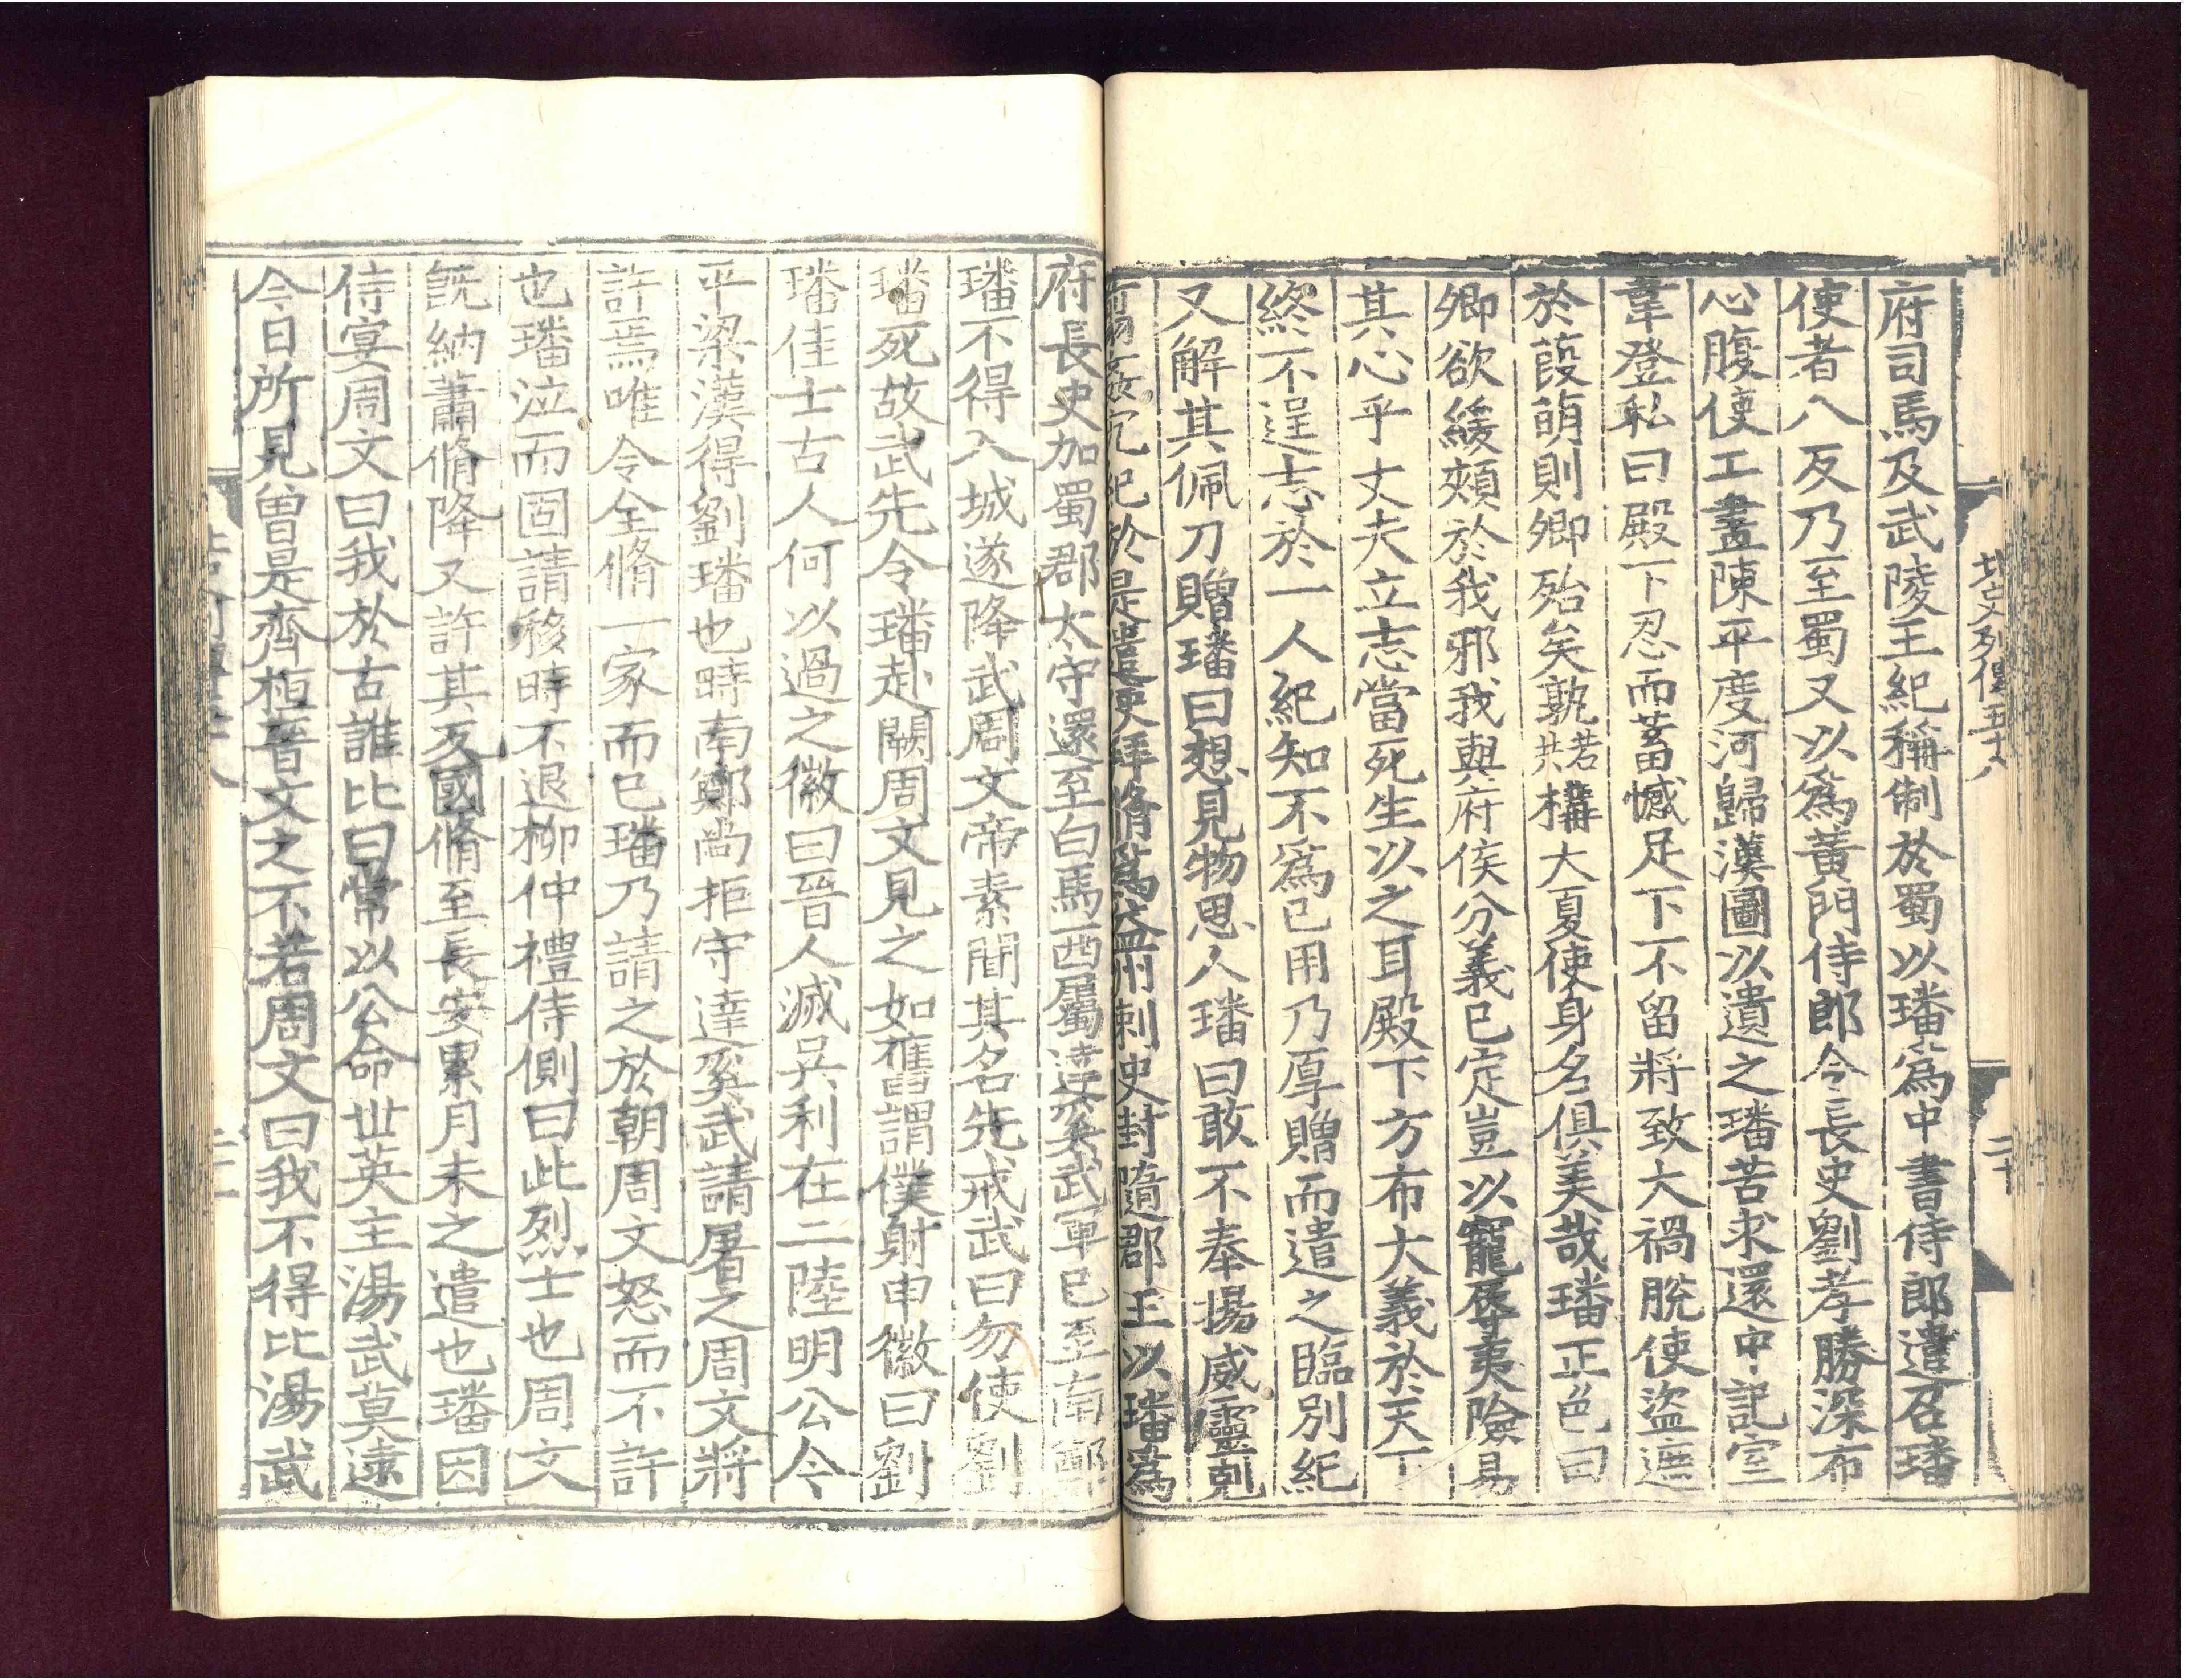 北史列傳五十八
二十
府司馬及武陵王紀稱制於蜀以璠爲中書侍郎遣召璠
使者八反乃至蜀又以爲黃門侍郎令長史劉孝勝深布
心腹使工畫陳平度河歸漢圖以遺之璠苦求還中記室
韋登私曰殿下忍而蓄憾足下不留將致大禍脫使盜遮
於葭萌則卿殆矣孰若共構大夏使身名俱美哉璠正色曰
卿欲緩頰於我邪我與府侯分義已定豈以寵辱夷險易
其心乎丈夫立志當死生以之耳殿下方布大義於天下
終不逞志於一人紀知不爲己用乃厚贈而遣之臨別紀
又解其佩刀贈璠曰想見物思人璠曰敢不奉揚威靈剋
紀於是遣使拜脩爲益州刺史封隨郡王以璠爲
府長史加蜀郡太守還至白馬西屬達奚武軍已至南鄭
璠不得入城遂降武周文帝素聞其名先戒武曰勿使劉
璠死故武先令璠赴闕周文見之如舊謂僕射申徽曰劉
璠佳士古人何以過之徽曰晉人滅吳利在二陸明公今
平梁漢得劉璠也時南鄭尚拒守達奚武請屠之周文將
許焉唯令全脩一家而已璠乃請之於朝周文怒而不許
也璠泣而固請移時不退柳仲禮侍側曰此烈士也周文
旣納蕭脩降又許其反國脩至長安累月未之遣也璠因
侍宴周文曰我於古誰比曰常以公命世英主湯武莫逮
今日所見曾是齊桓晉文之不若周文曰我不得比湯武